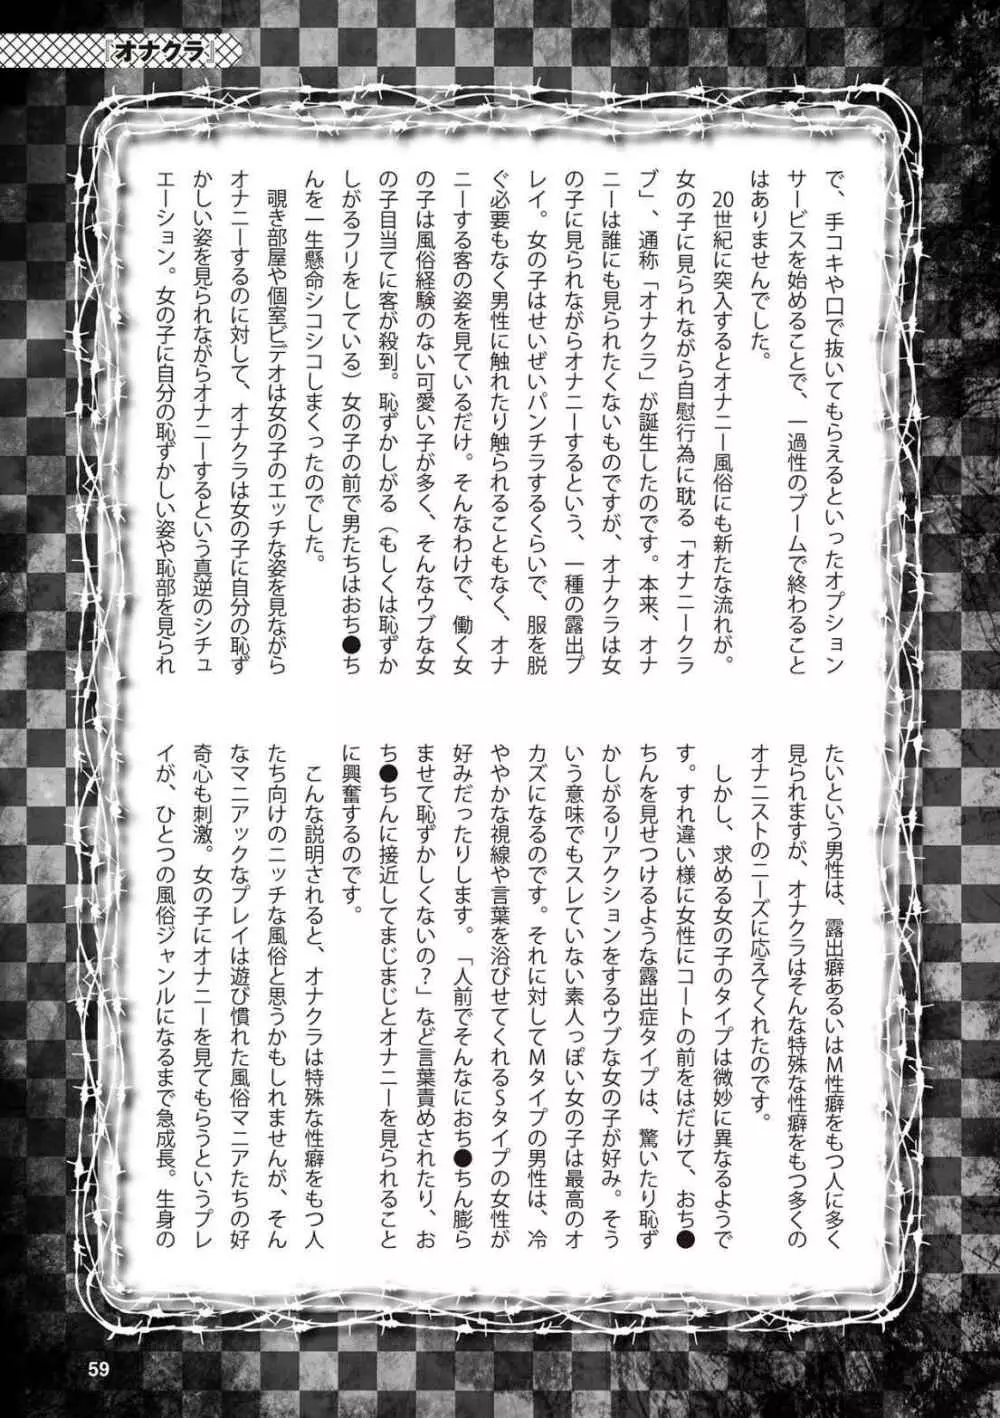 『オナクラ』
で、手コキや口で抜いてもらえるといったオプション
サービスを始めることで、一過性のブームで終わること
はありませんでした。
20世紀に突入するとオナニー風俗にも新たな流れが。
女の子に見られながら自慰行為に耽る「オナニークラ
ブ」、通称「オナクラ」が誕生したのです。本来、オナ
ニーは誰にも見られたくないものですが、オナクラは女
の子に見られながらオナニーするという、一種の露出プ
レイ。女の子はせいぜいパンチラするくらいで、服を脱
ぐ必要もなく男性に触れたり触られることもなく、オナ
ニーする客の姿を見ているだけ。そんなわけで、働く女
の子は風俗経験のない可愛い子が多く、そんなウブな女
の子目当てに客が殺到。恥ずかしがる（もしくは恥ずか
しがるフリをしている）女の子の前で男たちはおち●ち
んを一生懸命シコシコしまくったのでした。
覗き部屋や個室ビデオは女の子のエッチな姿を見ながら
オナニーするのに対して、オナクラは女の子に自分の恥ず
かしい姿を見られながらオナニーするという真逆のシチュ
エーション。女の子に自分の恥ずかしい姿や恥部を見られ
たいという男性は、露出癖あるいはM性癖をもつ人に多く
見られますが、オナクラはそんな特殊な性癖をもつ多くの
オナニストのニーズに応えてくれたのです。
しかし、求める女の子のタイプは微妙に異なるようで
す。すれ違い様に女性にコートの前をはだけて、おち●
ちんを見せつけるような露出症タイプは、驚いたり恥ず
かしがるリアクションをするウブな女の子が好み。そう
いう意味でもスレていない素人っぽい女の子は最高のオ
カズになるのです。それに対してMタイプの男性は、冷
ややかな視線や言葉を浴びせてくれるSタイプの女性が
好みだったりします。「人前でそんなにおち●ちん膨ら
ませて恥ずかしくないの？」など言葉責めされたり、お
ち●ちんに接近してまじまじとオナニーを見られること
に興奮するのです。
こんな説明されると、オナクラは特殊な性癖をもつ人
たち向けのニッチな風俗と思うかもしれませんが、そん
なマニアックなプレイは遊び慣れた風俗マニアたちの好
奇心も刺激。女の子にオナニーを見てもらうというプレ
イが、ひとつの風俗ジャンルになるまで急成長。生身の
59